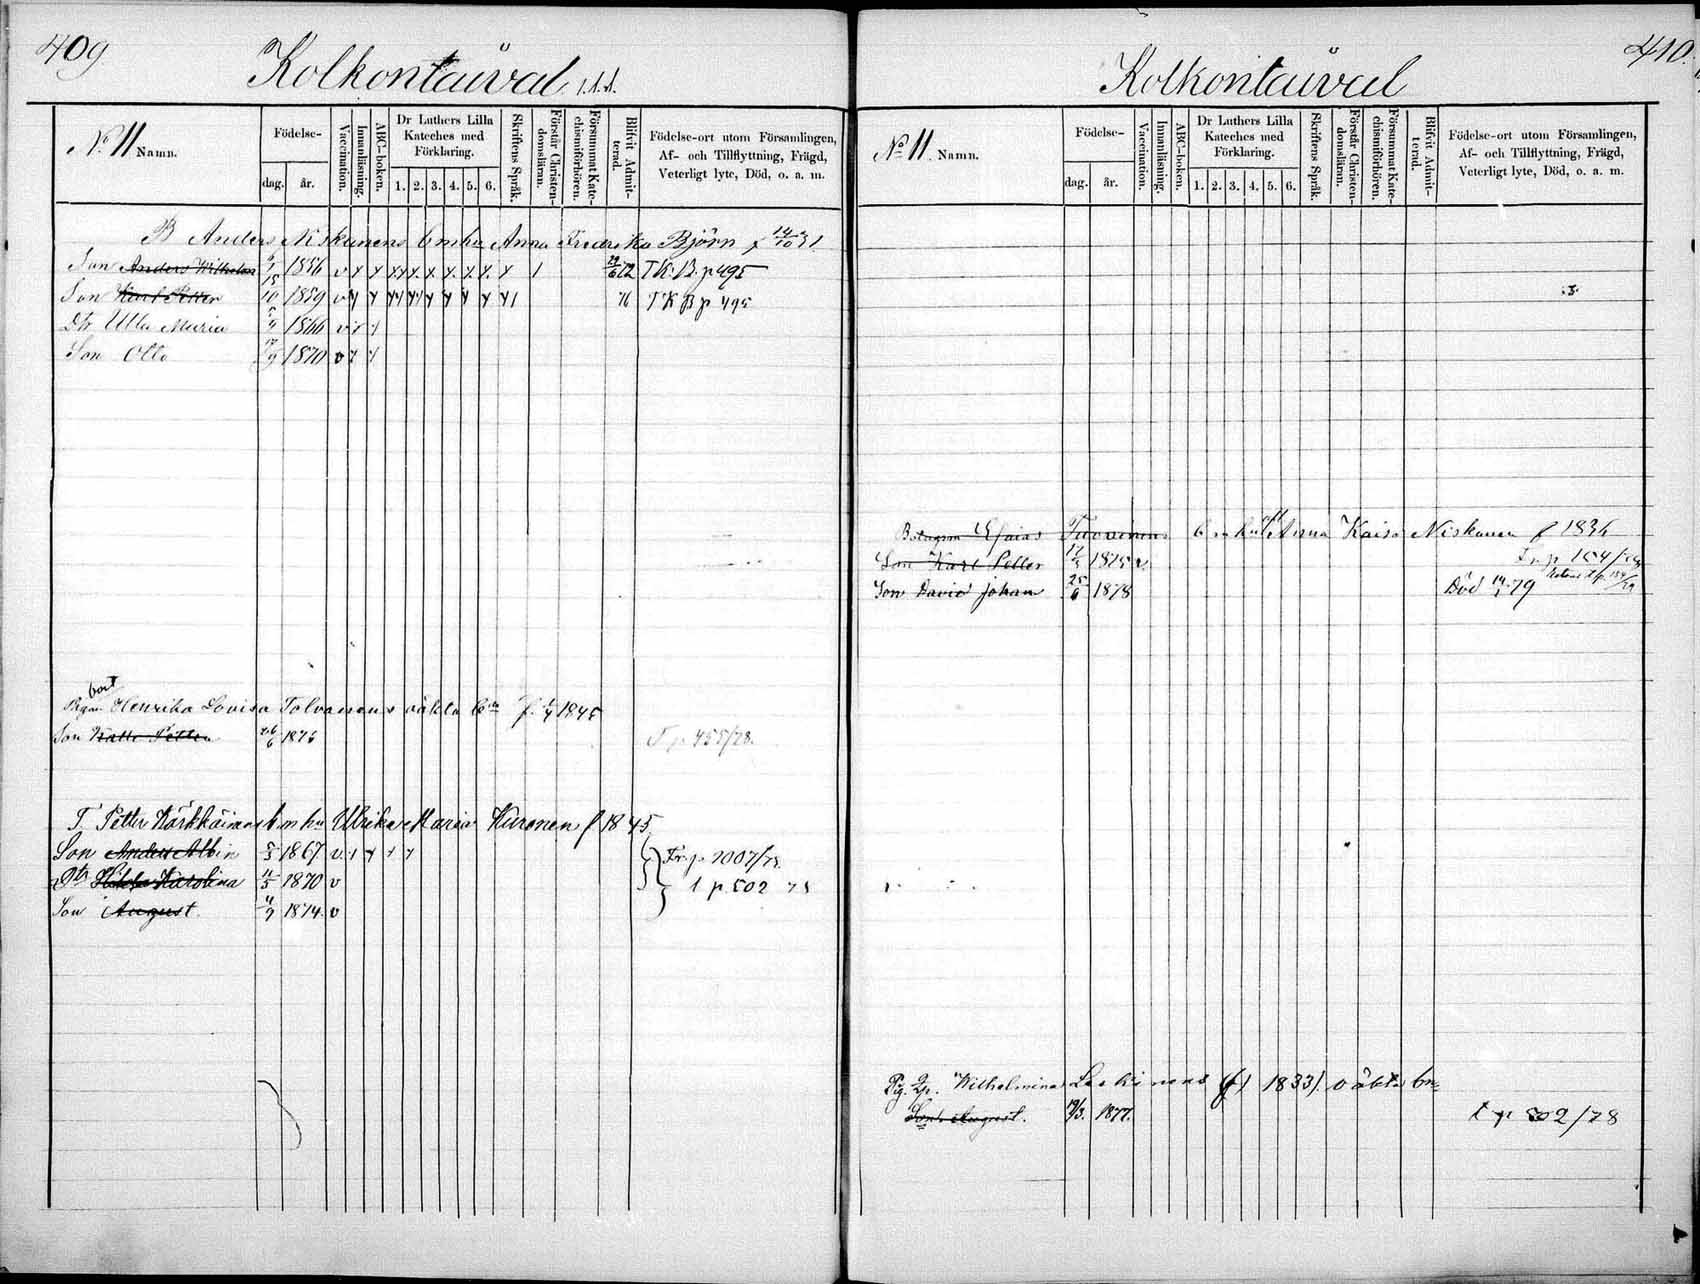 409
Kolkontaival
N:o 11 Namn.
Födelse-
dag. år.
Vaccination.
Innanläsning.
ABC-boken.
Dr Luthers Lilla
Kateches med
Förklaring.
1. 2. 3. 4. 5. 6.
Skriftens Språk.
Förstår Christen-
domsläran.
Försummat Kate-
chismiförhören.
Blifvit Admit-
terad.
Födelse-ort utom Församlingen,
Af- och Tillflyttning, Frägd,
Veterligt lyte, Död, o. a. m.
B Anders Niskanens Anna Fredrika Björn f 14/10 31
Son Anders Wilhelm 1856 v 72 T K.B. p 495
Son Karl Petter 15/10 1859 v 76 T K B p 495
Dtr Ulla Maria 1866 v
Son Otto 1870 v
Henrika Lovisa Tolvanens oäkta 1845
Son Kalle Petter 26/6 1876 T p 455/78.
T. Petter Kärkkäinens Ulrika Maria Kuronen f 1845
Son Anders Albin 1867 v Fr. p 1007/78.
Dtr Hilda Karolina 1870 v p. 502 78
Son August. 1874. v
410.
Kolkontaival
N:o 11. Namn.
Födelse-
dag. år.
Vaccination.
Innanläsning.
ABC-boken.
Dr Luthers Lilla
Kateches med
Förklaring.
1. 2. 3. 4. 5. 6.
Skriftens Språk.
Förstår Christen-
domsläran.
Försummat Kate-
chismiförhören.
Blifvit Admit-
terad.
Födelse-ort utom Församlingen,
Af- och Tillflyttning, Frägd,
Veterligt lyte, Död, o. a. m.
Esaias Tuovinens Anna Kaisa Niskanen f 1836
Son Karl Petter 1875 v.
Son David Johan 25/6 1878 Död 79
Pig. Wilhelmina Laskinens (f) 1833). oäkta
Son August. 19/3. 1877. t p 502/78